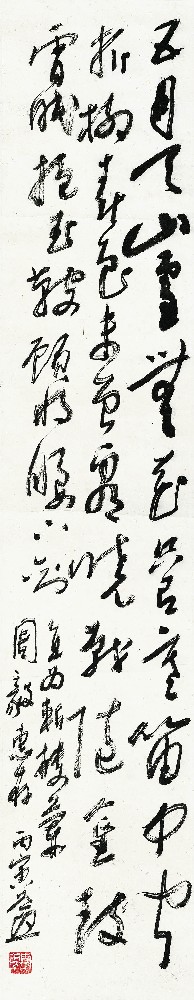 五月天山雪無花只有寒笛中聞
折柳春色未曾看曉戰隨金鼓
宵眠抱玉鞍願將腰下劍
直为斬樓蘭
周毅惠存 丙寅